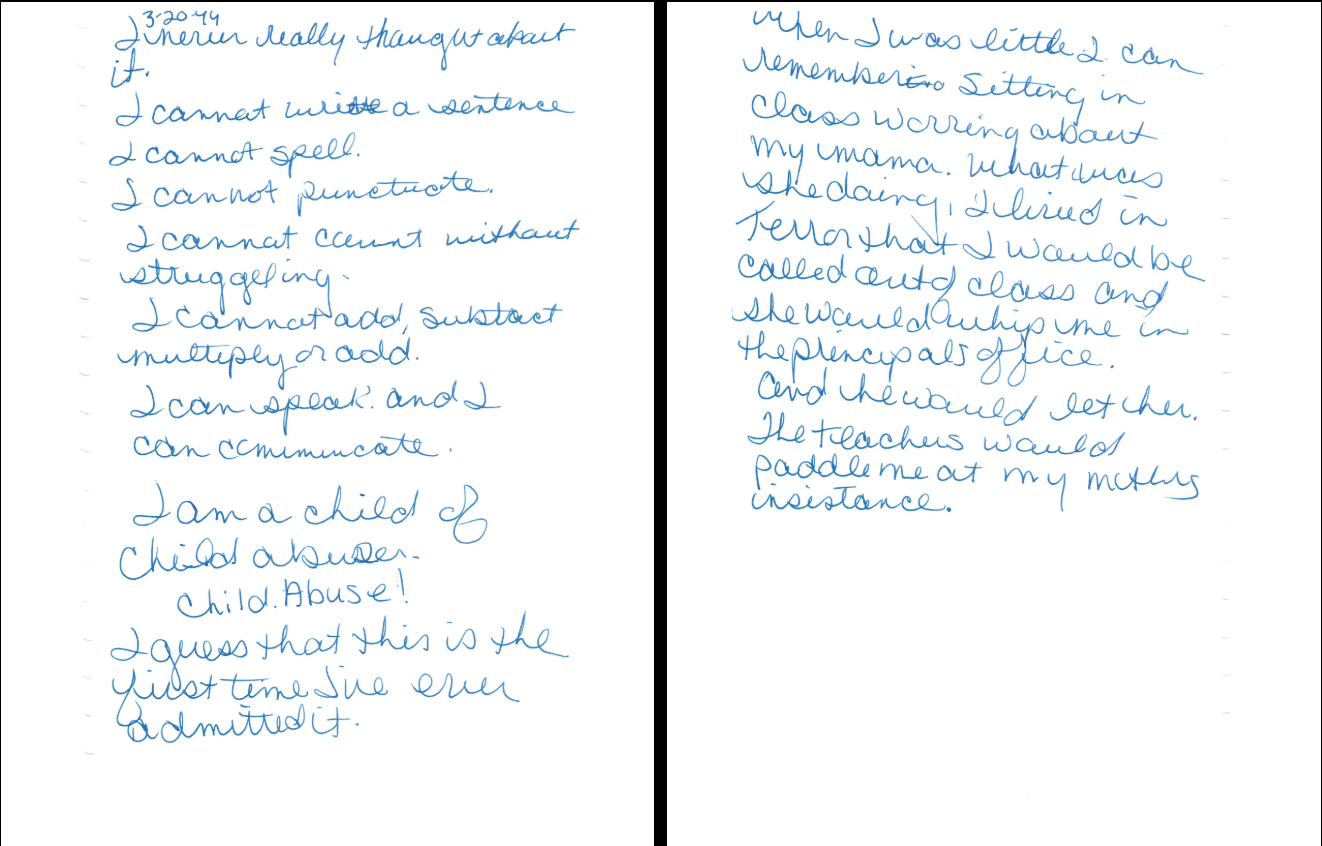 3-20-44
I never really thought about
it.
I cannot write a sentence
I cannot spell.
I cannot punctuate.
I cannot count without
struggeling.
I cannot add, subtact
multiply or add.
I can speak. and I
can comimuncate.
I am a child of
Child abuser.
Child.Abuse!
I guess that this is the
first time I've ever
admitted it.
When I was little I can
remember sitting in
class worring about
my mama. What was
she doing, I lived in
Terror that I would be
called out of class and
she would whip me in
the principals office.
And he would let her.
The teachers would
paddle me at my mothers
insistance.